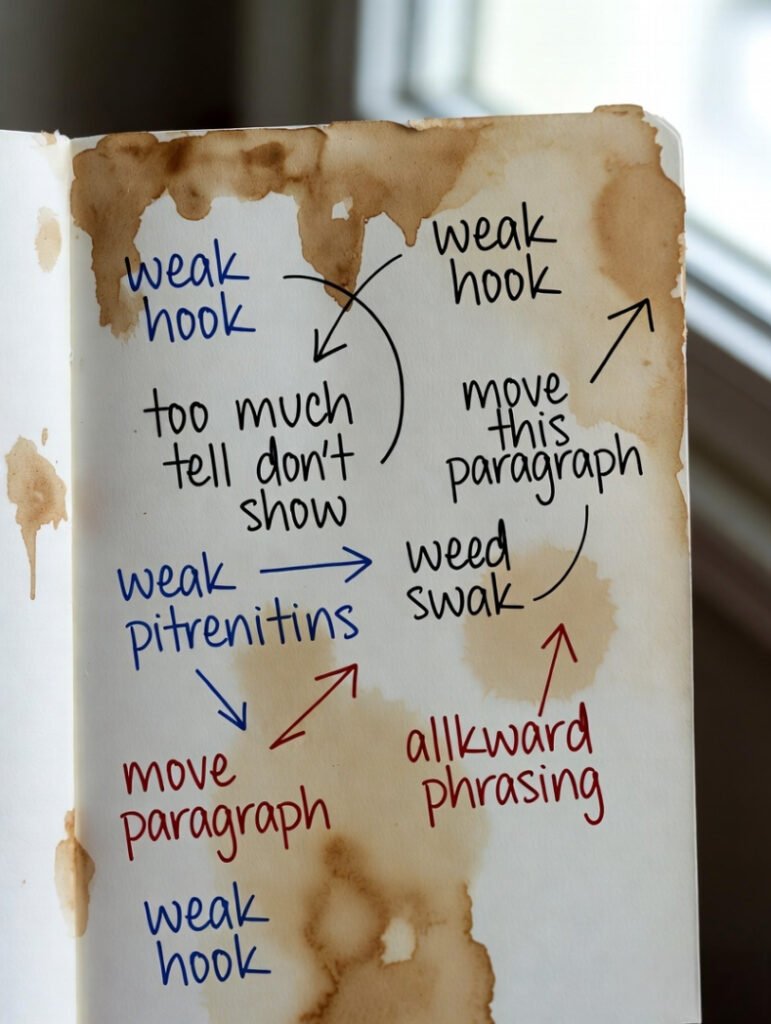 weak
hook
weak
hook
too much
tell don't
show
move
this
paragraph
weak
pitrenitins
weed
swak
move
paragraph
allkward
phrasing
weak
hook